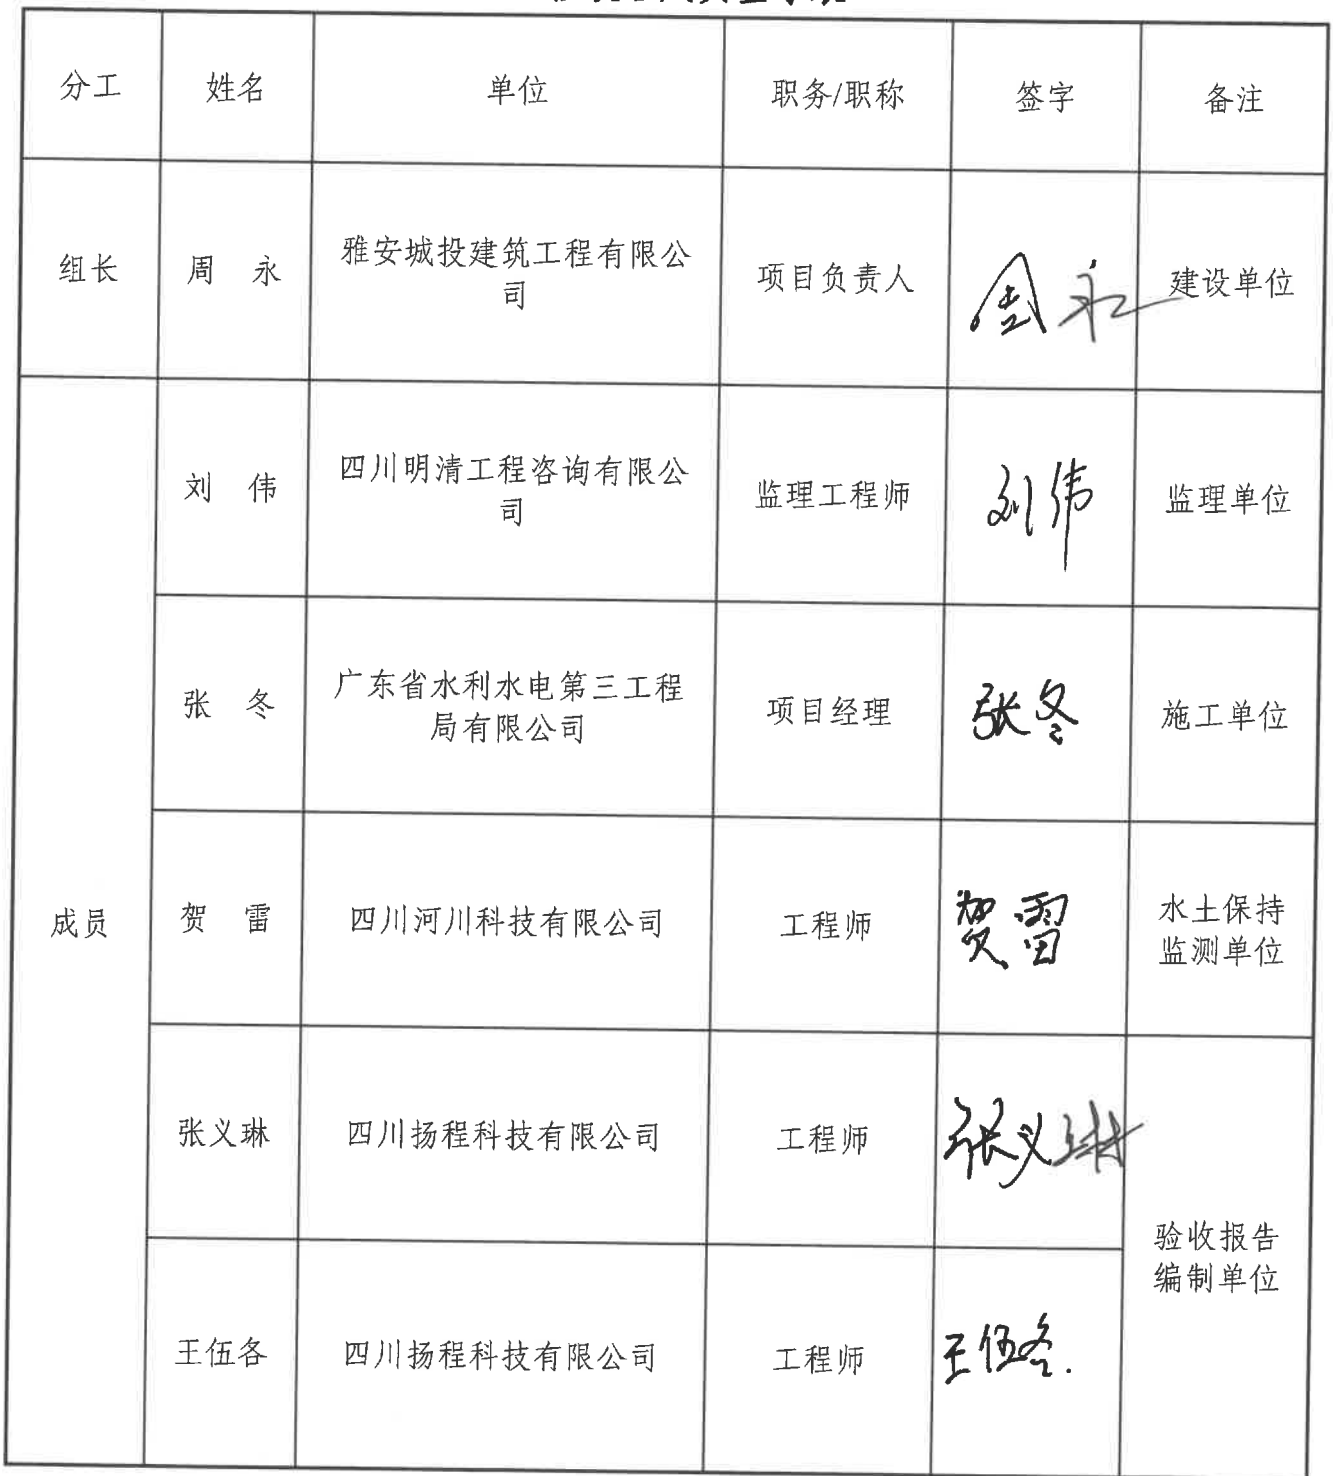 分工 姓名 单位 职务/职称 签字 备注
组长 周 永 雅安城投建筑工程有限公 项目负责人 周永 建设单位
司
刘 伟 四川明清工程咨询有限公 监理工程师 刘伟 监理单位
司
张 冬 广东省水利水电第三工程 项目经理 张冬 施工单位
局有限公司
成员 贺 雷 四川河川科技有限公司 工程师 贺雷 水土保持
监测单位
张义琳 四川扬程科技有限公司 工程师 张义琳
验收报告
编制单位
王伍各 四川扬程科技有限公司 工程师 王伍各.